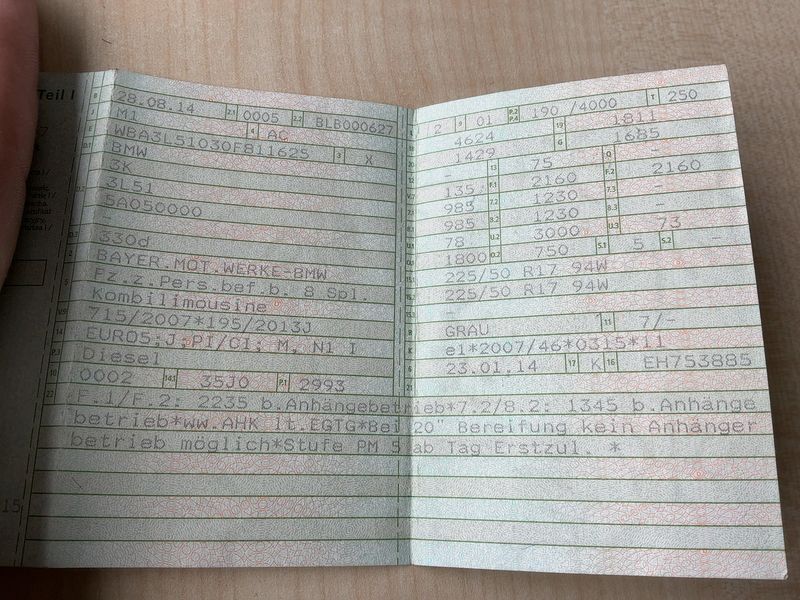 Teil I
B 28.08.14 2.1 0005 2.2 BLB000627
J M1 4 AC
E WBA3L51030F811625 3 X
D.1 BMW
D.2 3K
3L51
5A050000
-
D.3 330d
2 BAYER.MOT.WERKE-BMW
5 Fz.z.Pers.bef.b. 8 Spl.
Kombilimousine
V.9 715/2007*195/2013J
14 EURO5;J;PI/CI; M, N1 I
P.3 Diesel
10 0002 14.1 35J0 P.1 2993
L 2 9 01 P.2 P.4 190 /4000 T 250
18 4624 19 1811
20 1429 G 1685
12 - 13 75 Q -
V.7 135 F.1 2160 F.2 2160
7.1 985 7.2 1230 7.3 -
8.1 985 8.2 1230 8.3 -
U.1 78 U.2 3000 U.3 73
O.1 1800 O.2 750 S.1 5 S.2
15.1 225/50 R17 94W
15.2 225/50 R17 94W
15.3 -
R GRAU 11 7/-
K e1*2007/46*0315*11
6 23.01.14 17 K 16 EH753885
22 F.1/F.2: 2235 b.Anhängebetrieb*7.2/8.2: 1345 b.Anhänge
betrieb*ww.AHK lt.EGTG*Bei 20" Bereifung kein Anhänger
betrieb möglich*Stufe PM 5 ab Tag Erstzul. *
15